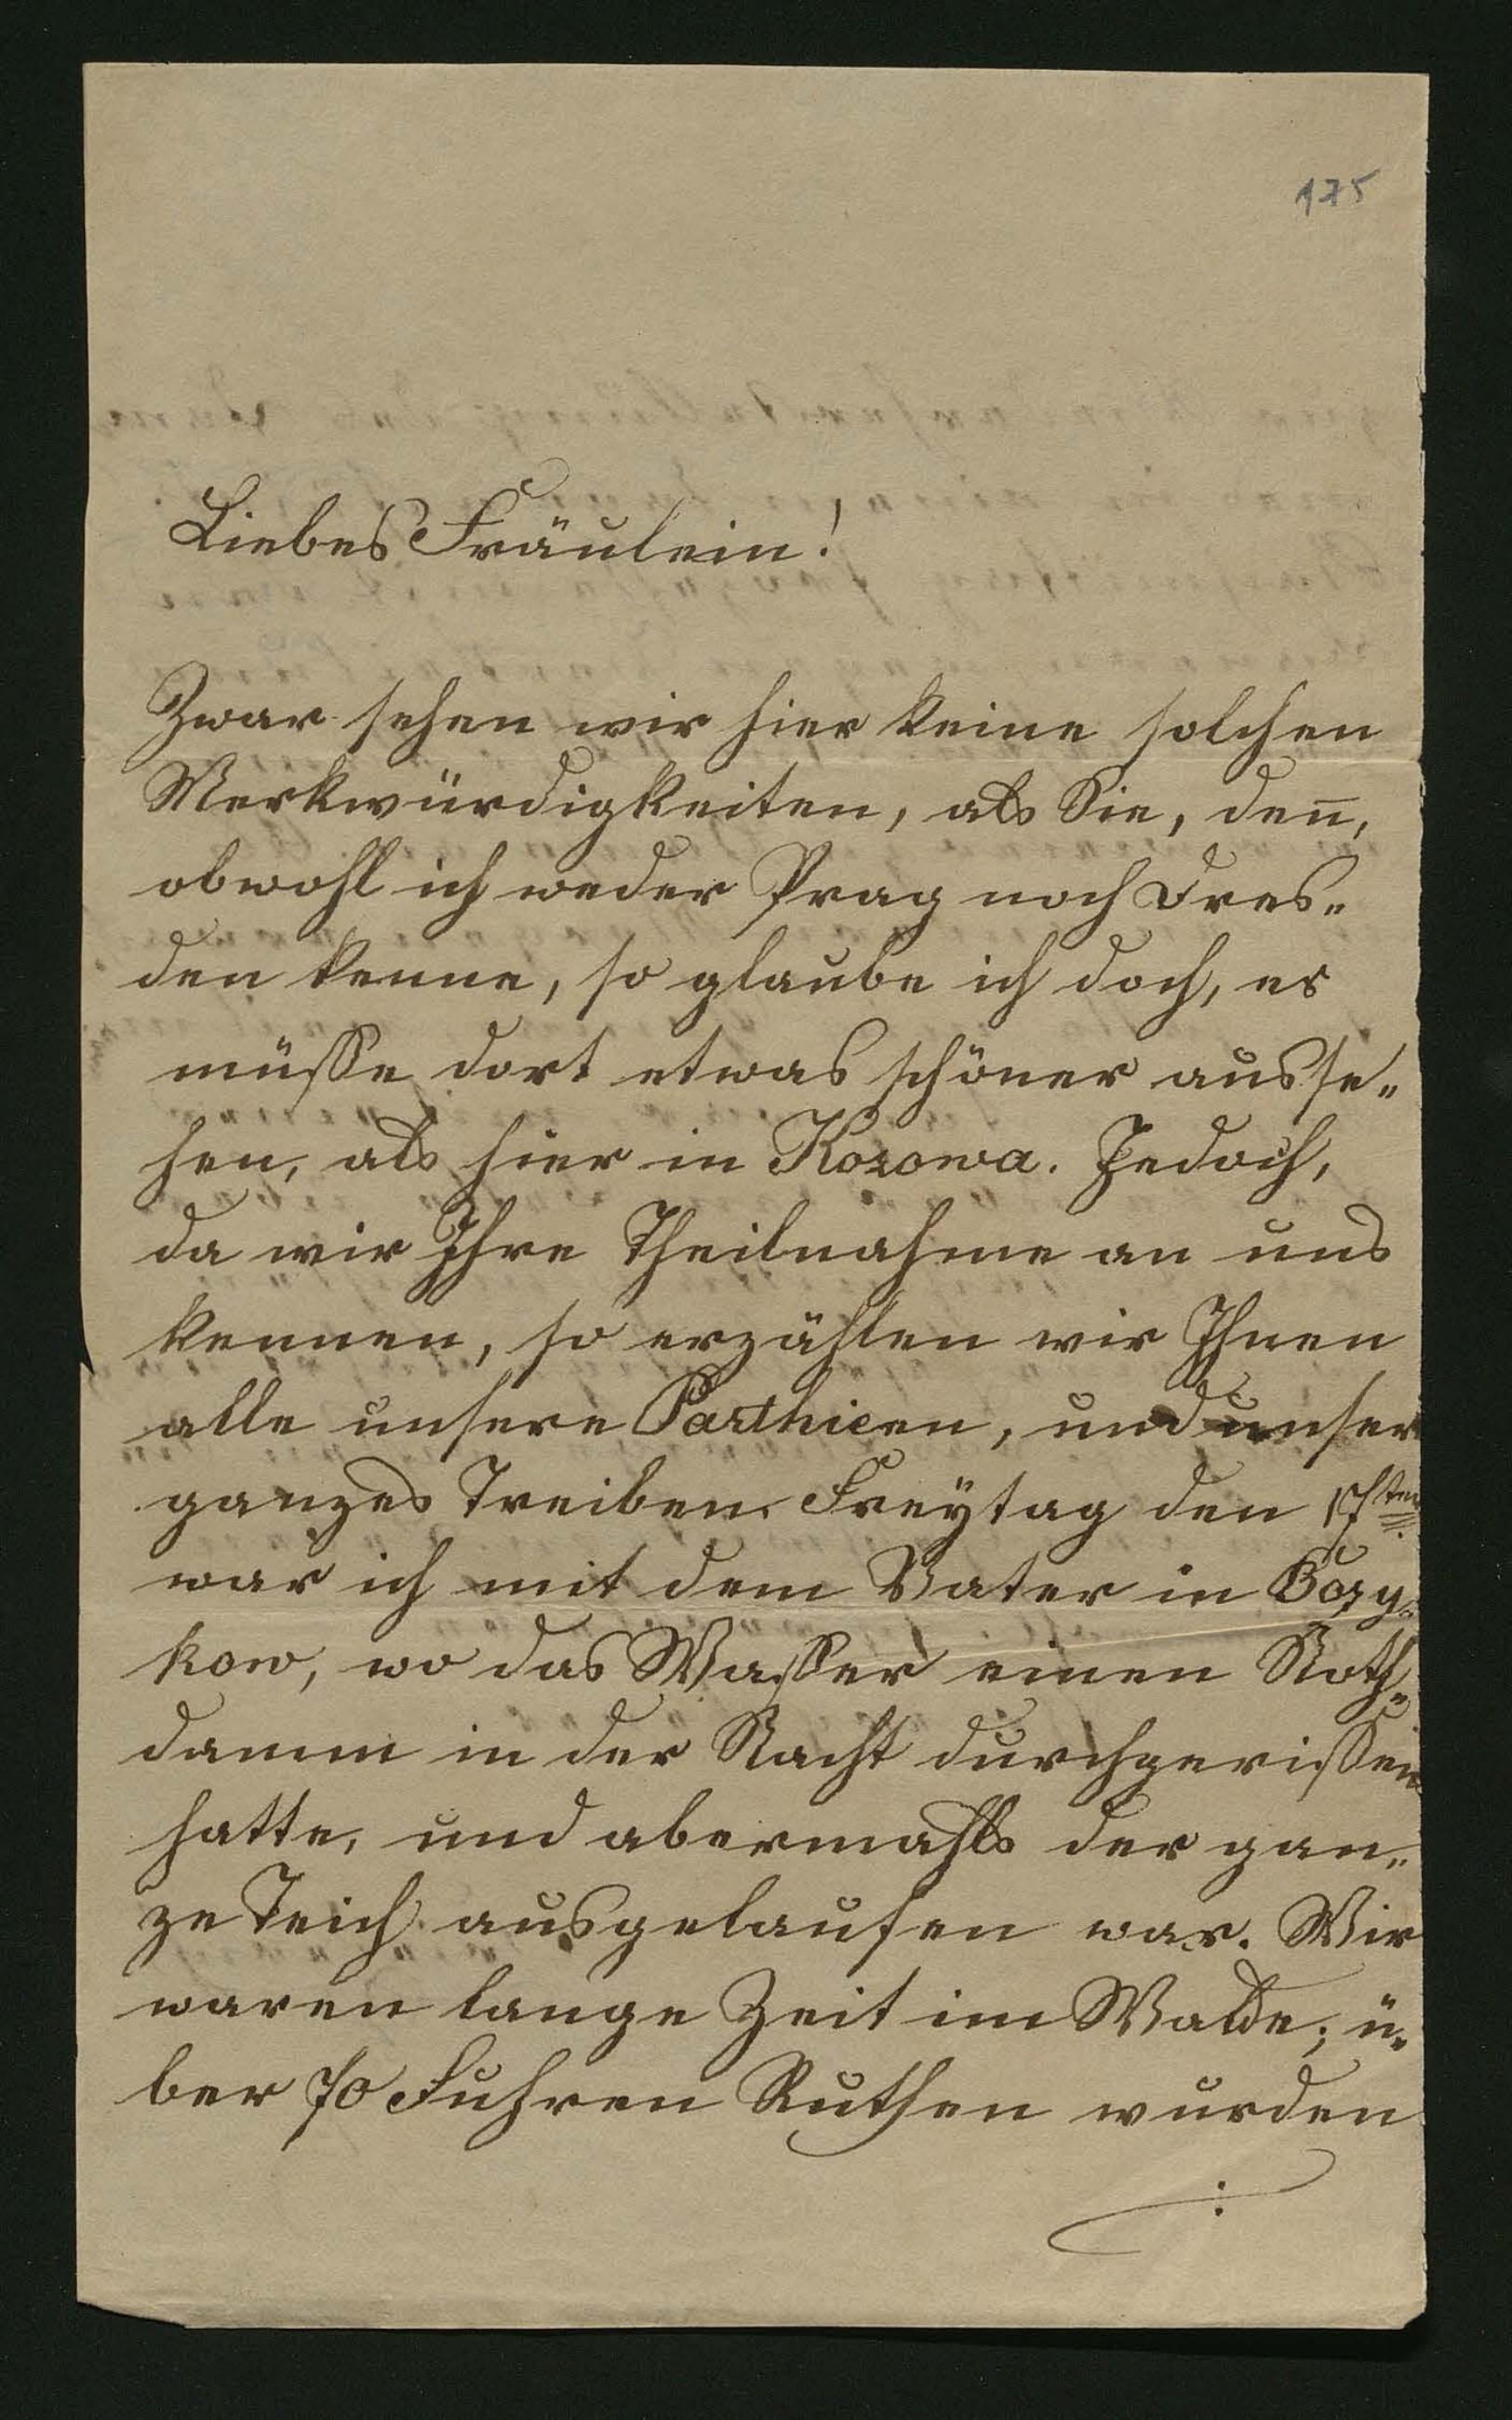 175
Liebes Fräulein!
Zwar sehen wir hier keine solchen
Merkwürdigkeiten, als Sie, den̅,
obwohl ich weder Prag noch Dres„
den kenne, so glaube ich doch, es
müsse dort etwas schöner ausse„
hen, als hier in Kozowa. Jedoch,
da wir Ihre Theilnahme an uns
kennen, so erzählen wir Ihnen
alle unsere Parthieen, und unser
ganzes Treiben. Freytag den 17ten
war ich mit dem Vater in Bozy„
kow, wo das Wasser einen Noth„
damm in der Nacht durchgerissen
hatte, und abermahls der gan„
ze Teich ausgelaufen war. Wir
waren lange Zeit im Walde; ü„
ber 70 Fuhren Ruthen wurden